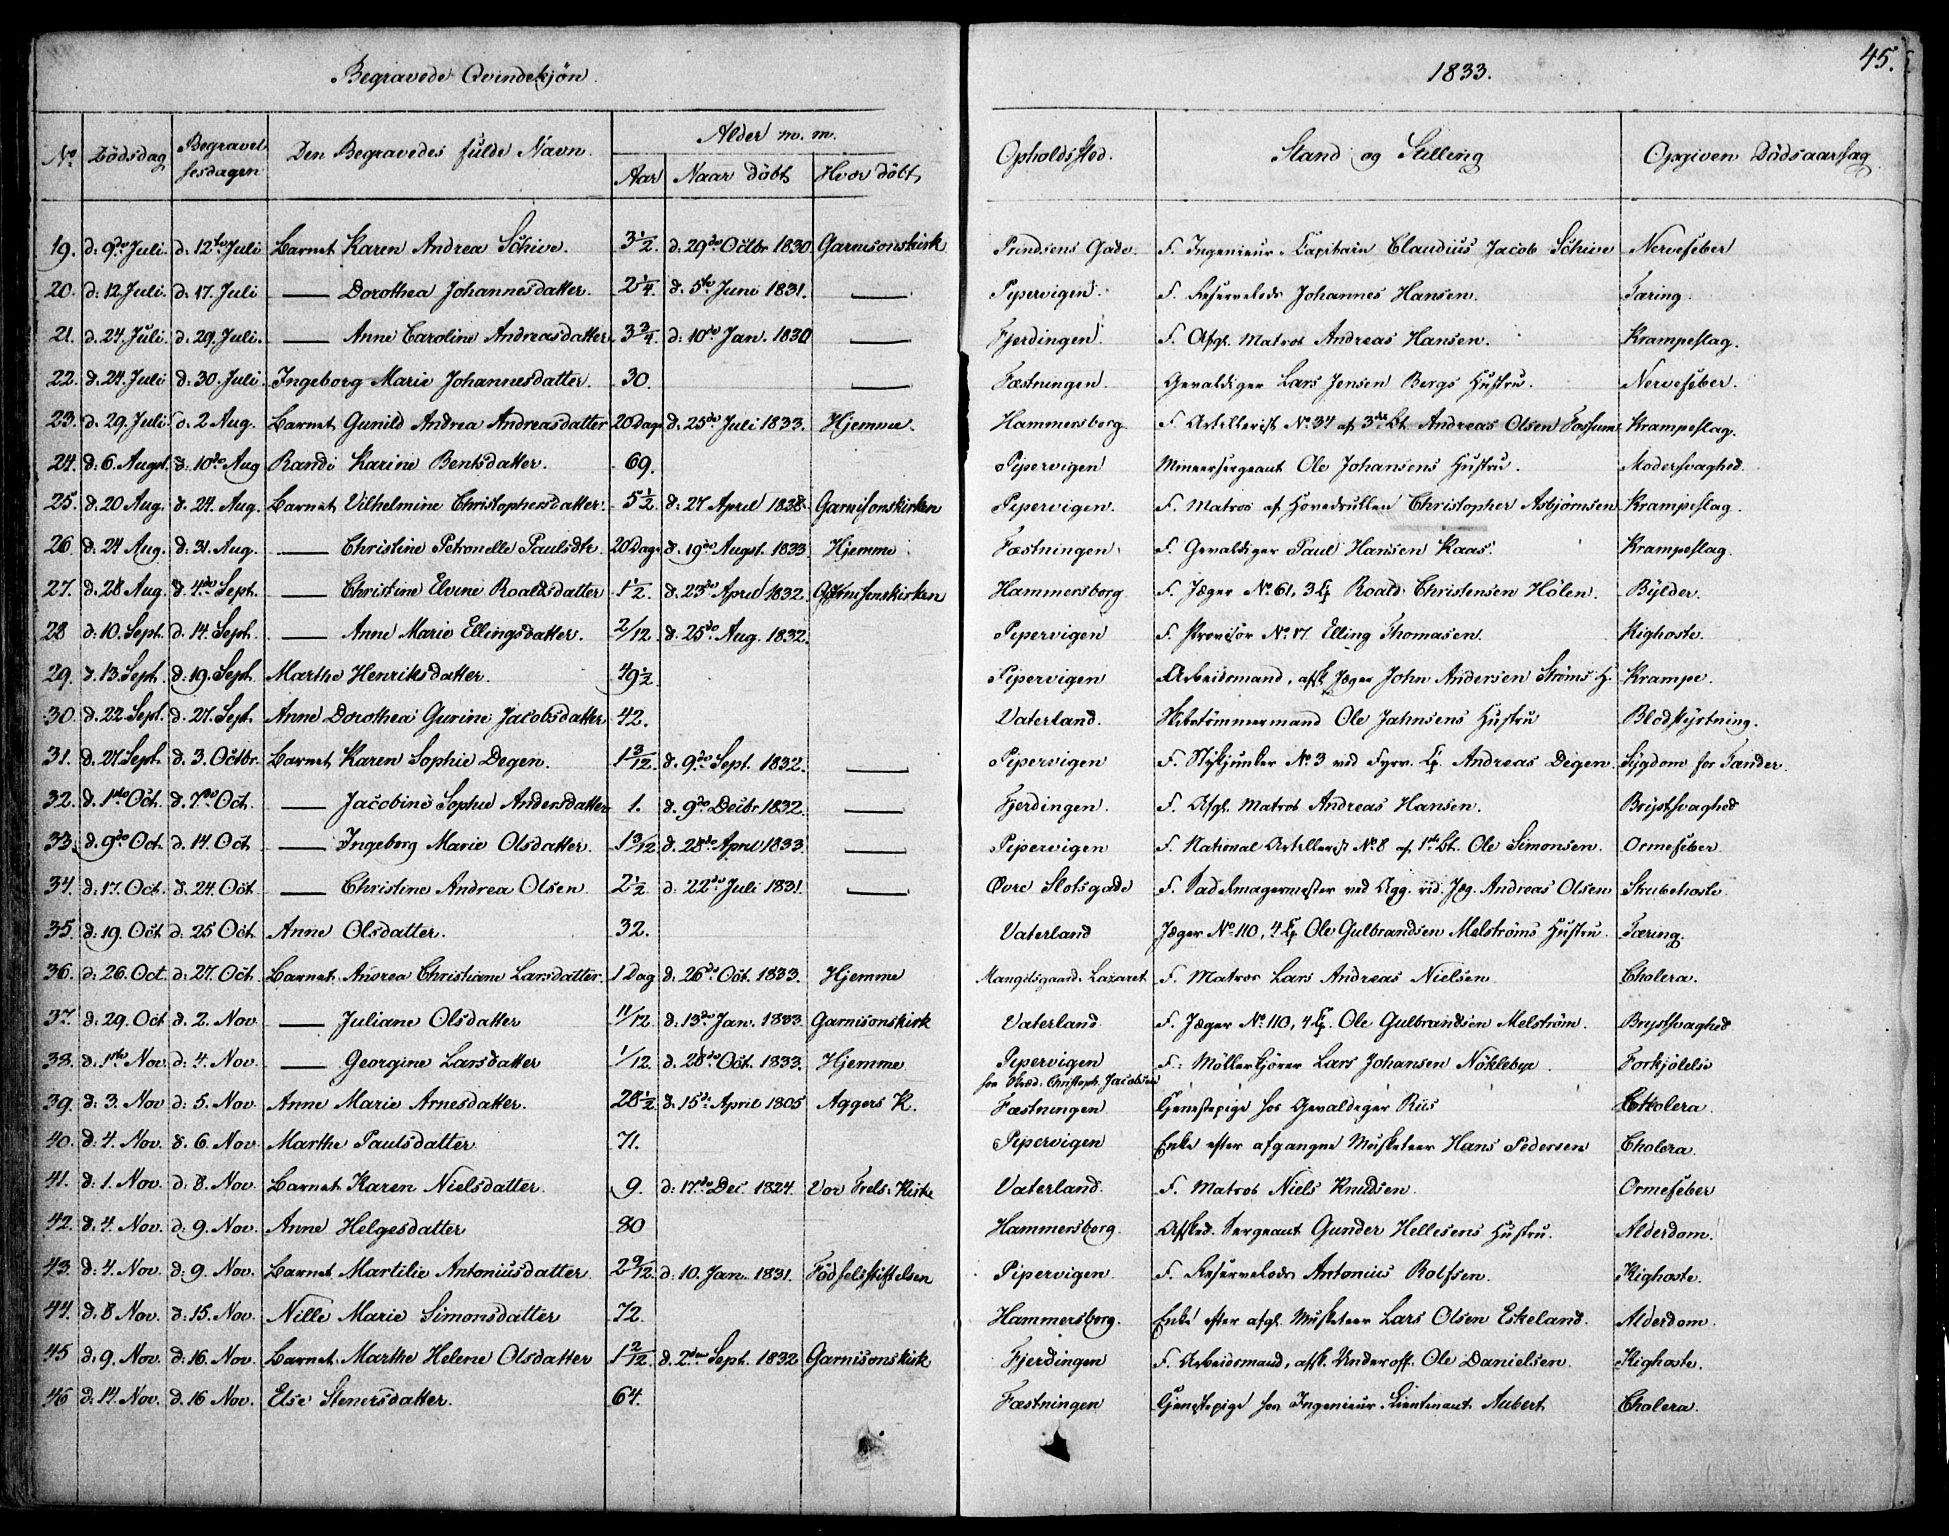 Begravede Qvindekjøn. 1833. 45.
No. Dödsdag Begravelsesdagen Den Begravedes fulde Navn. Alder m. m. Aar Naar döbt Hvor döbt Opholdssted. Stand og Stilling Opgiven Dödsaarsag
19. d. 9de Juli. d. 12te Juli Barnet Karen Andrea Schive. 3 1/2 d. 29de Octbr 1830. Garnisonskirk Prindsens Gade. F. Ingenieur-Capitain Claudius Jacob Schive Nervefeber
20. d. 12. Juli. d. 17. Juli — Dorothea Johannesdatter. 2 1/4. d. 5te Juni 1831. — Pipervigen. F. Reservelods Johannes Hansen. Tæring.
21. d. 24. Juli. d. 29. Juli. — Anne Caroline Andreasdatter 3 3/4. d. 10de Jan. 1830 — Fjerdingen. F. Afgl. Matros Andreas Hansen. Krampeslag.
22. d. 24. Juli d. 30. Juli. Ingeborg Marie Johannesdatter. 30. — Fæstningen. Gevaldiger Lars Jensen Bergs Hustru. Nervefeber.
23. d. 29. Juli d. 2 Aug. Barnet Gunild Andrea Andreasdatter 20 Dage d. 25de Juli 1833. Hjemme. Hammersborg F. Artillerist No. 34 af 3die Bt. Andreas Olsen Fossum Krampeslag.
24. d. 6. Augst. d. 10de Aug Randi Karine Bentsdatter. 69. Pipervigen Mineersergeant Ole Johansens Hustru. Modersvaghed.
25. d. 20 Aug. d. 24. Aug. Barnet Vilhelmine Christophersdatter. 5 1/2. d. 27 April 1828. Garnisonskirken Pipervigen. F. Matros af Hovedrullen Christopher Asbjørnsen Krampeslag.
26. d. 24 Aug. d. 31. Aug. — Christine Petronelle Paulsdtr. 20 Dage d. 19de Augst. 1833 Hjemme. Fæstningen F. Gevaldiger Paul Hansen Kaas. Krampeslag.
27. d. 28 Aug. d. 4de Sept. — Christine Elvine Roaldsdatter 1 1/2. d. 23de April 1832. Garnisonskirken Hammersborg F. Jæger No. 61, 3 Cp Roald Christensen Hölen. Bÿlder.
28 d. 10. Sept. d. 14. Sept. — Anne Marie Ellingsdatter. 2/12. d. 25de Aug. 1832. Pipervigen F. Provisor No. 17. Elling Thomasen. Kighoste.
29. d. 13. Sept. d. 19. Sept. Marthe Henriksdatter. 49 1/2. Pipervigen Arbeidsmand, afsk. Jæger John Andersen Ströms H. Krampe.
30. d. 22. Sept. d. 27. Sept. Anne Dorothea Gurine Jacobsdatter 42. Vaterland. Skibstömmermand Ole Jahnsens Hustru Blodstyrtning.
31. d. 27. Sept. d. 3. Octbr. Barnet Karen Sophie Degen. 1 3/12. d. 9de Sept. 1832. — Pipervigen F. Stykjunker No. 3 ved Fyrv. Cp. Andreas Degen. Sygdom for Tænder.
32. d. 1ste Oct. d. 7de Oct. — Jacobine Sophie Andersdatter 1. d. 9de Decbr. 1832. — Fjerdingen. F. Afgl. Matros Andreas Hansen. Brystsvaghed
33. d. 9de Oct. d. 14. Oct — Ingeborg Marie Olsdatter. 1 3/12 d. 28de April 1833. — Pipervigen F. National Artillerist No. 8 af 1ste Bt. Ole Simonsen. Ormefeber.
34. d. 17. Oct. d. 24. Oct. — Christine Andrea Olsen. 2 1/2 d. 22de Juli 1831. — Øvre Slotsgade F. Sadelmagermester ved Agg. rid. Jæg. Andreas Olsen Strubehoste.
35. d. 19. Oct. d. 25 Oct. Anne Olsdatter. 32. Vaterland Jæger No. 110, 4 Cp Ole Gulbrandsen Melströms Hustru. Tæring.
36. d. 26. Oct. d. 27. Oct. Barnet Andrea Christiane Larsdatter. 1 Dag d. 26de Oct. 1833. Hjemme Mangelsgaards Lazaret F. Matros Lars Andreas Nielsen Cholera.
37. d. 29. Oct d. 2. Nov — Juliane Olsdatter 11/12. d. 13de Jan. 1833. Garnisonskirk Vaterland. F. Jæger No. 110, 4 Cp. Ole Gulbrandsen Melström. Brystsvaghed
38. d. 1ste Nov. d. 4. Nov. — Georgine Larsdatter 1/12. d. 28de Oct. 1833. Hjemme Pipervigen F. Möllerkjörer Lars Johansen Nöklebye. Forkjölelse
hos Skred. Christoph. Jacobsen
39. d. 3. Nov d. 5. Nov. Anne Marie Arnesdatter. 28 1/2. d. 15de April 1805 Aggers K. Fæstningen Tjenestepige hos Gevaldiger Riis Cholera.
40. d. 4. Nov. d. 6. Nov. Marthe Paulsdatter 71. Pipervigen Enke efter afgangne Musketeer Hans Pedersen Cholera.
41. d. 1. Nov. d. 8. Nov. Barnet Karen Nielsdatter. 9. d. 17de Dec. 1824. Vor Frels: Kirke Vaterland. F. Matros Niels Knudsen. Ormefeber
42. d. 4. Nov. d. 9. Nov. Anne Helgesdatter 80 Hammersborg. Afsked. Sergeant Gunder Hellesens Hustru. Alderdom.
43. d. 4. Nov. d. 9. Nov. Barnet Martilie Antoniusdatter. 2 9/12 d. 10. Jan. 1831. Födselsstiftelsen Pipervigen. F. Reservelods Antonius Rolfsen. Kighoste.
44. d. 8 Nov. d. 15. Nov. Nille Marie Simonsdatter 72. Hammersberg. Enke efter afgl. Musketeer Lars Olsen Eskeland. Alderdom.
45 d. 9. Nov. d. 16. Nov. Barnet Marthe Helene Olsdatter 1 2/12 d. 2den Sept. 1832 Garnisonskirk Fjerdingen F. Arbeidsmand, afsk. Underoff. Ole Danielsen. Kighoste.
46 d. 14. Nov. d. 16 Nov. Else Stenersdatter. 64. Fæstningen Tjenestepige hos Ingenieur-Lieutenant Aubert Cholera.